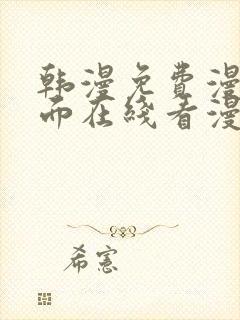 韩漫免费漫
而在线看漫
希宪